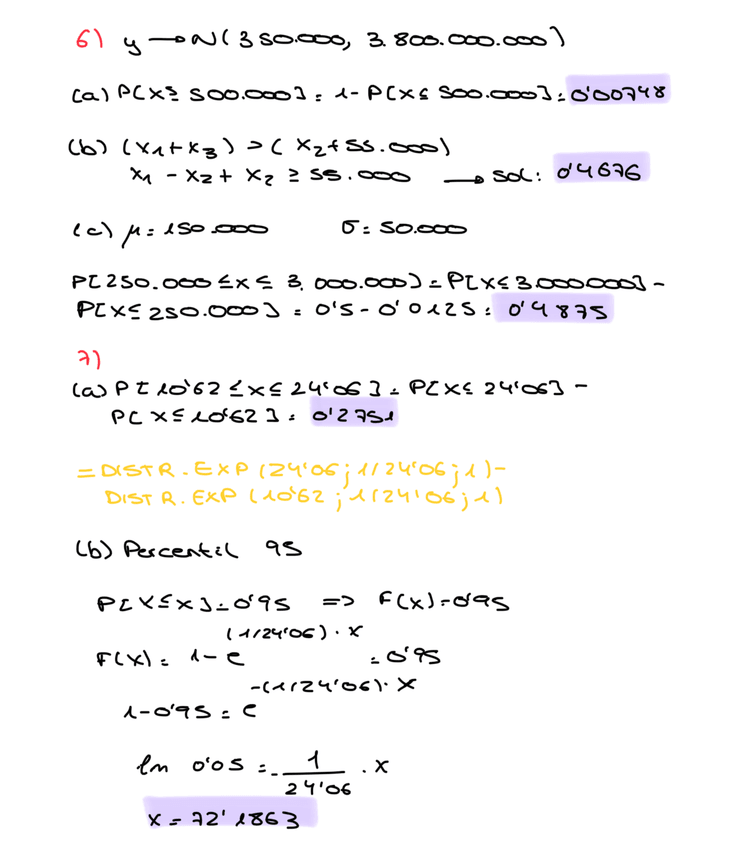 6) y → N(350.000, 3.800.000.000)
(a) P[X≥ 500.000] = 1- P[X≤ 500.000] = 0'00748
(b) (X1+X3) > (X2+55.000)
X1 - X2 + X2 ≥ 55.000 → sol: 0'4676
(c) μ = 150.000 σ = 50.000
P[250.000 ≤ X ≤ 3.000.000] = P[X≤ 3.000.000] -
P[X≤ 250.000] = 0'5 - 0'0125 = 0'4875
7)
(a) P[10'62 ≤ X ≤ 24'06] = P[X≤ 24'06] -
P[X≤10'62] = 0'2751
= DISTR.EXP(24'06; 1/24'06; 1) -
DISTR.EXP(10'62; 1/24'06; 1)
(b) Percentil 95
P[X≤x] = 0'95 => F(x) = 0'95
(1/24'06) · x
F(x) = 1 - e = 0'95
-(1/24'06) · x
1 - 0'95 = e
ln 0'05 = - 1/24'06 · x
x = 72'1863